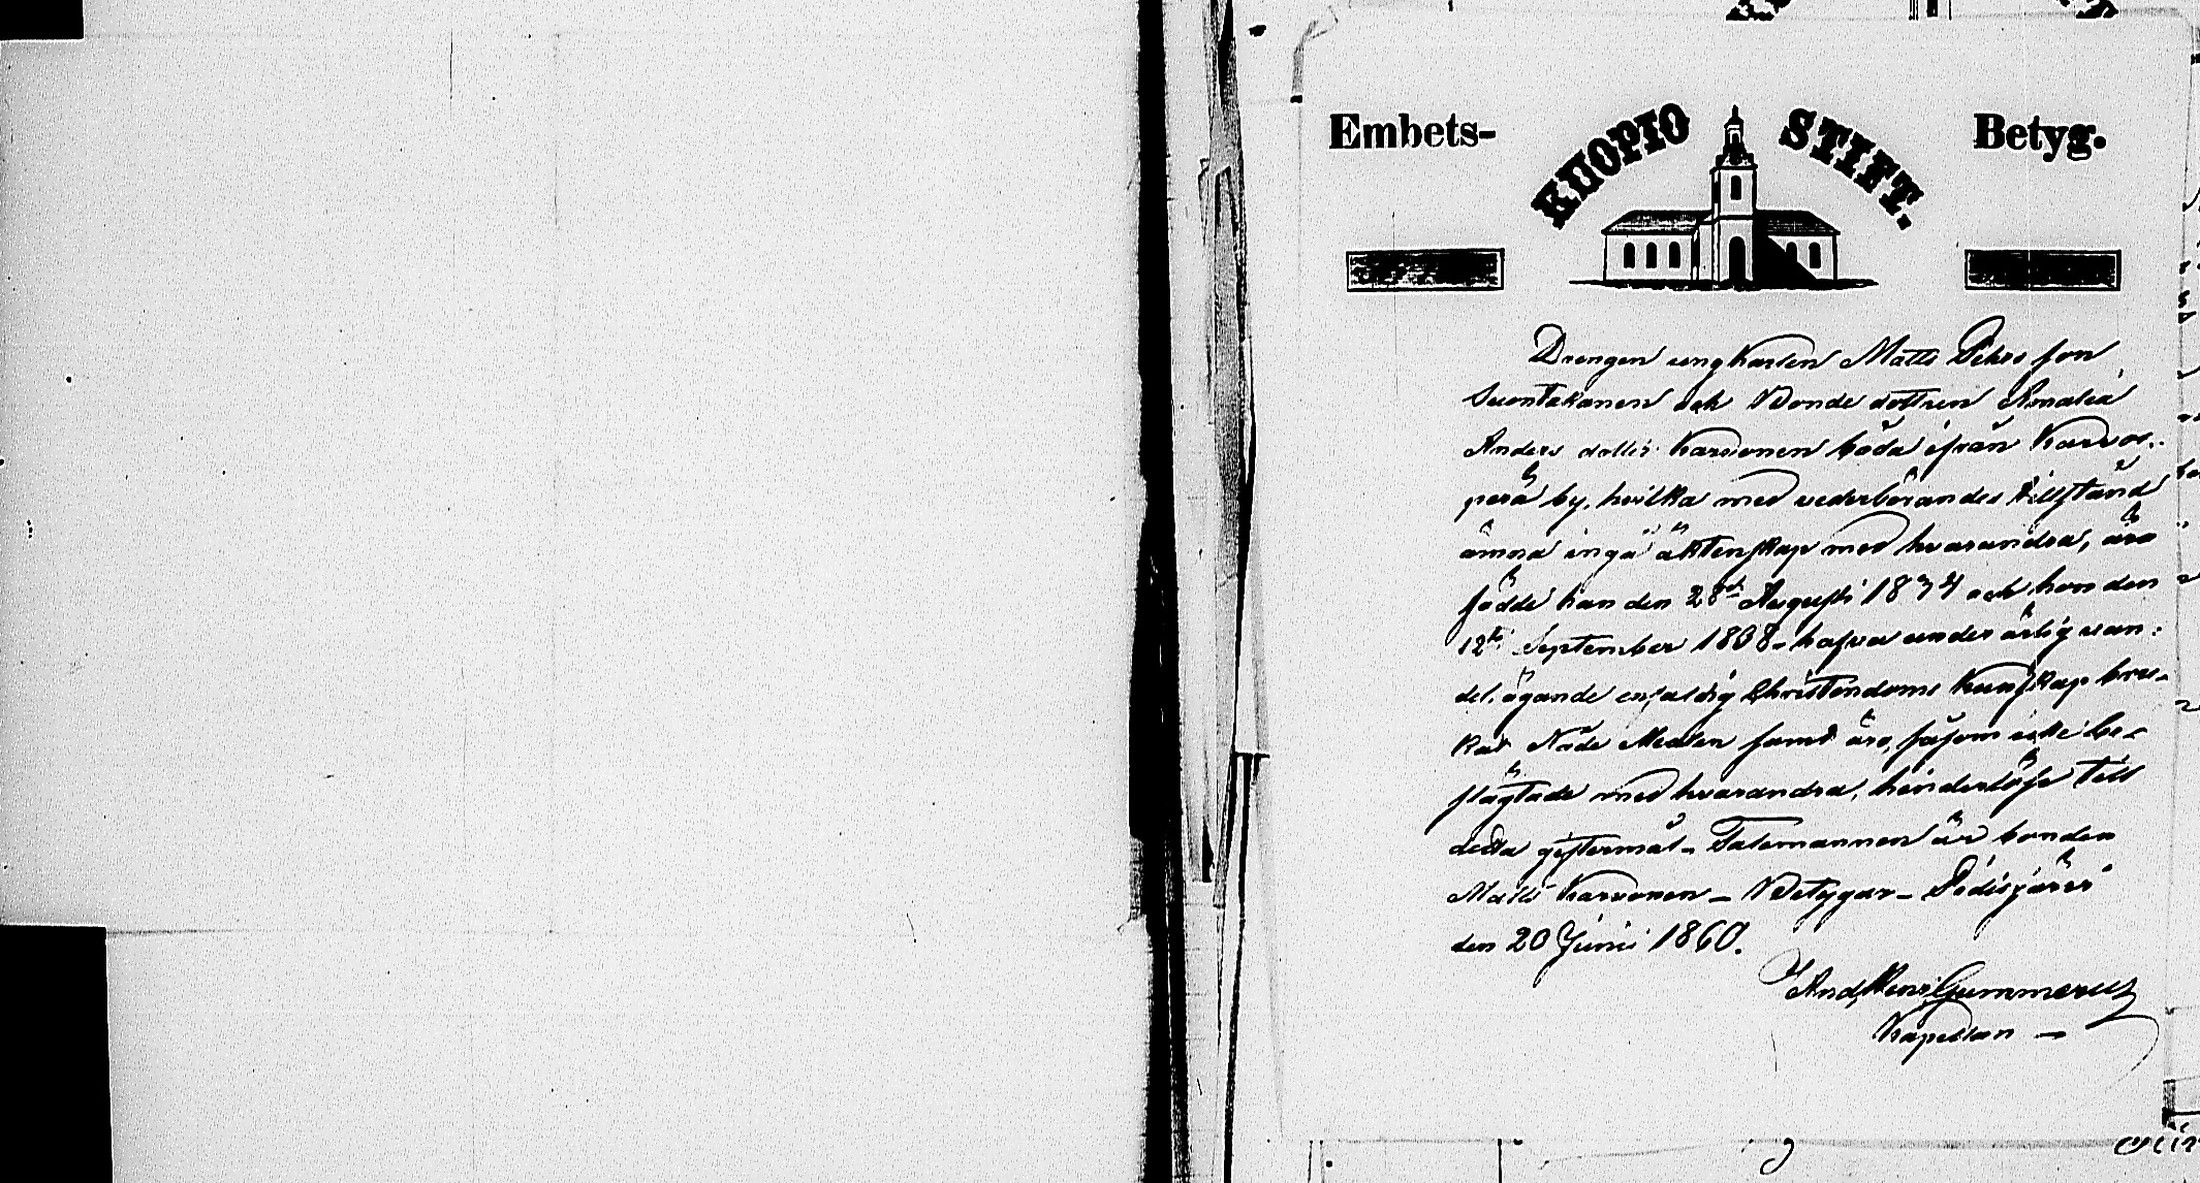 Embets- KUOPIO STIFT. Betyg.
Drengen ungkarlen Matts Pehrs son
Suontakanen och Bonde dottren Amalia
Anders dotter Karvonen båda ifrån Karvos-
perä by, hvilka med vederbörandes tillstånd
ämna ingå äktenskap med hvarandra, äro
födde han den 28de Augusti 1834 och hon den
12te September 1838 - hafva under ärlig van-
del, ägande enfaldig Christendoms kunskap bru-
kat Nåde Medlen samt äro, såsom icke be-
slägtade med hvarandra, hinderlöse till
detta giftermål - Talemannen är bonden
Matts Karvonen - Betygar - Pidisjärvi
den 20 Junii 1860.
And. Henr. Gummerus
Kapellan -